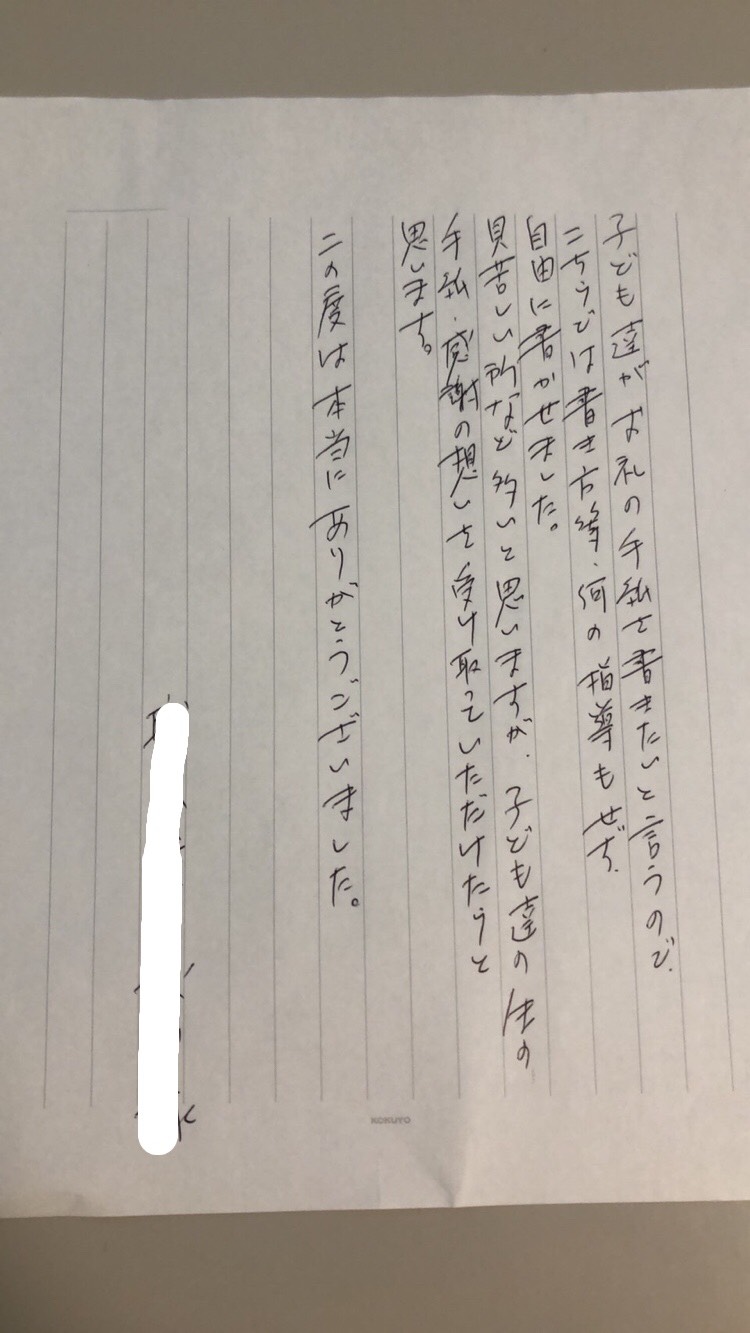 子ども達がお礼の手紙を書きたいと言うので、
こちらでは書き方等、何の指導もせず、
自由に書かせました。
見苦しい所など多いと思いますが、子ども達の生の
手紙・感謝の想いを受け取っていただけたらと
思います。
この度は本当にありがとうございました。
KOKUYO